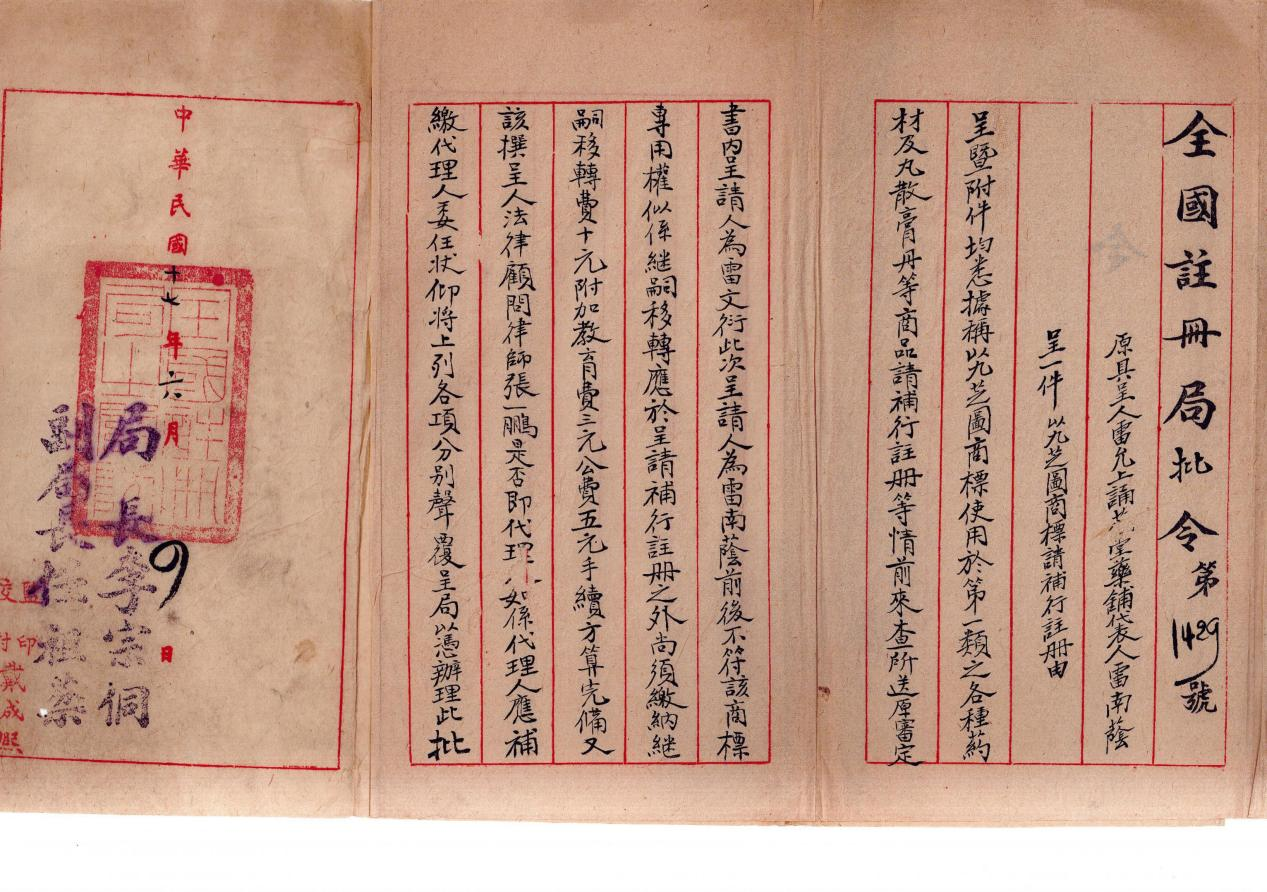 全國註冊局批令第1429號
原具呈人雷允上誦芬堂藥鋪代表人雷南蔭
呈一件 以九芝圖商標請補行註冊由
呈暨附件均悉據稱以九芝圖商標使用於第一類之各種葯
材及丸散膏丹等商品請補行註冊等情前來查所送原審定
書內呈請人為雷文衍此次呈請人為雷南蔭前後不符該商標
專用權似係継嗣移轉應於呈請補行註冊之外尚須繳納継
嗣移轉費十元附加教育費三元公費五元手續方算完備又
該撰呈人法律顧問律師張一鵬是否即代理人如係代理人應補
繳代理人委任狀仰將上列各項分別聲覆呈局以憑辦理此批
中華民國十七年六月9日
局長李宗侗
副局長任祖棻
監印
校對戴成熙